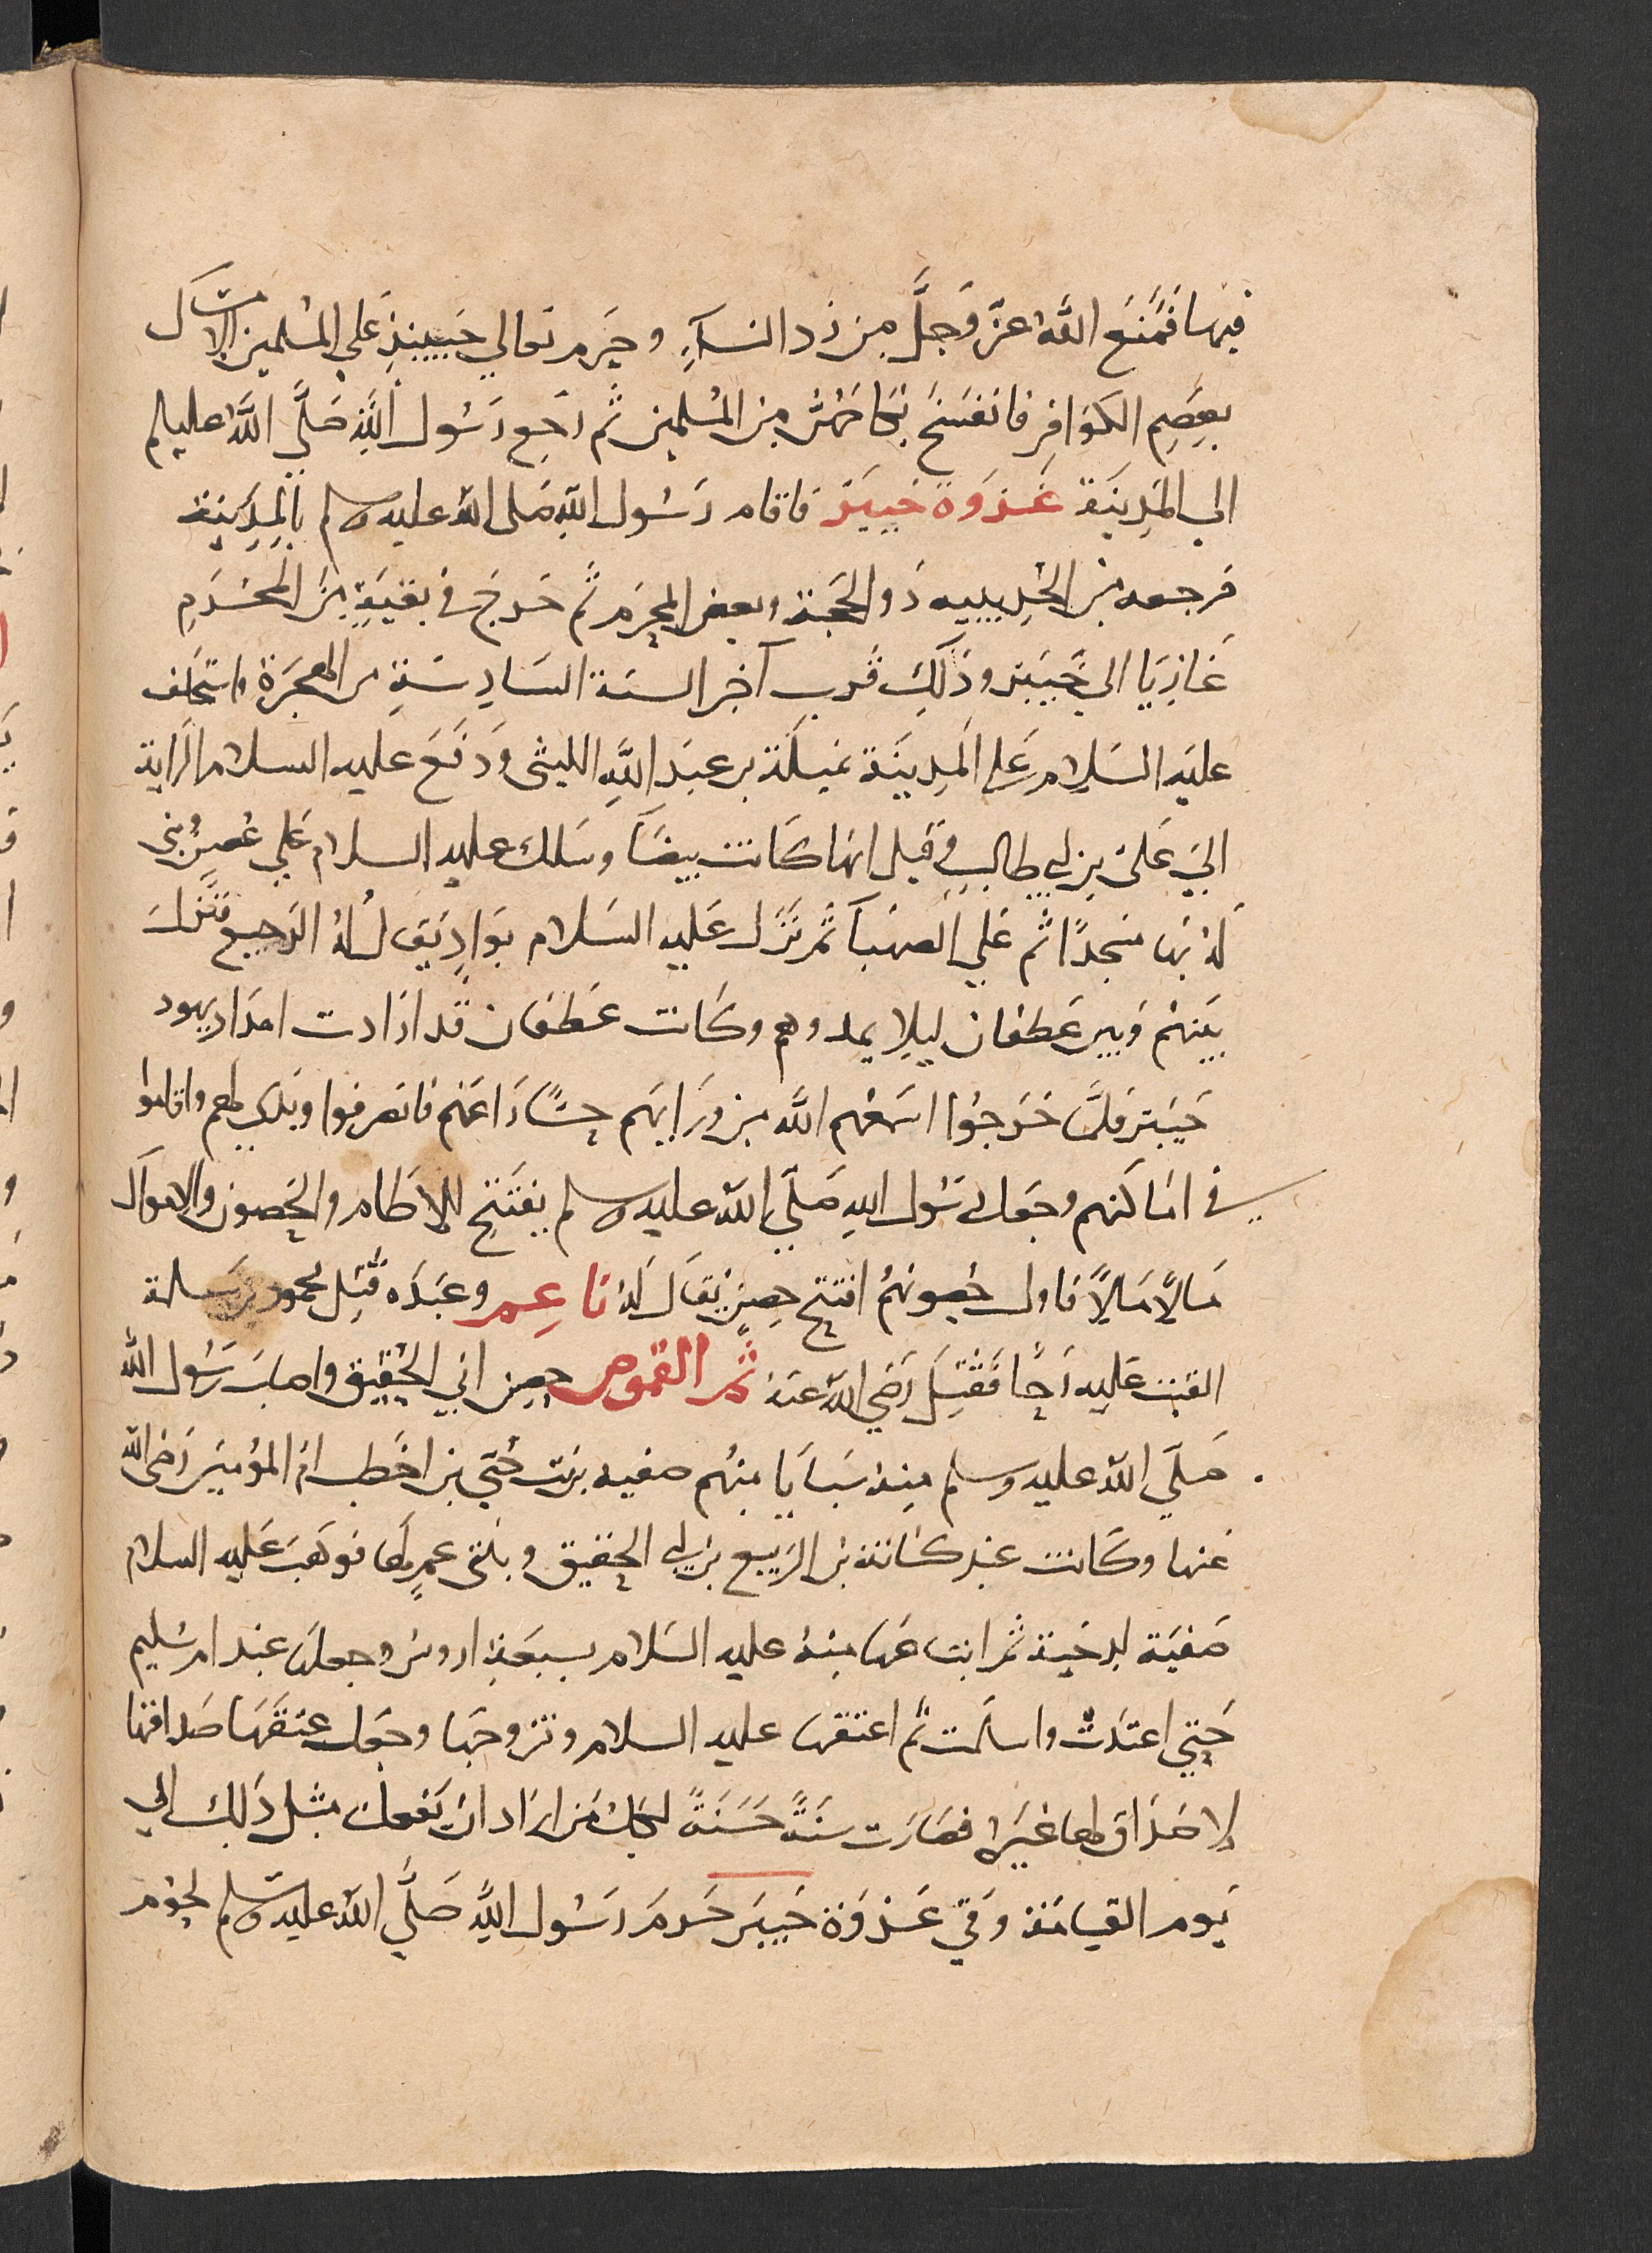 فيها فَمَنَعَ اللهُ عزَّ وَجَلَّ مِن رَد النسَآءِ وحَرم تعالي حينئِذٍ علي المسْلمين الامسَاك
بعِصَمِ الكوَافِرِ فانفسَخَ نكاحَهُنَّ من المُسْلمين ثُم رَجَع رَسُول اللهِ صَلَّي اللهُ عليه وسلم
الي المَدِينَة غَزوَة خَيبَر فاقام رَسُول اللهِ صَلى اللهُ عليه وسلم بالمِدَينة
مَرجعه من الحُدَيبيه ذو الحجَة وبعض المحرم ثُم خرَج في بَقيَةٍ مِنَ المحَرَم
غازيَا الى خَيبَر وذَلك قُرب آخِر السنَة السَادِسَةِ من الهجرَة واستخلف
عليَه السَلام عَلي المَدِينَة نميلَة بن عَبدَ اللهِ الليثي وَدفَعَ عليه السلام الرَاية
الي عَلى بن ابي طالب وقيل انها كانت بيضَآ وسَلك عليه السلام عَلي عَصَرٍ وبني
لهُ بها مسجدًا ثم عَلي الصَهبآ ثم نزَل عَليه السَلام بوَادٍ يقَال لهُ الرَجيع فنَزل
بَينهم وَبين غَطفان ليلا يمدوهم وكَانت غطفان قَد ارَادت امدَاد يهود
خَيبَر فلمَّا خرَجوُا اسمَعَهم الله من ورَايهم حسًّا رَاعَهُم فانصرفوا وبَدَي لهم واقاموا
في امَاكنهم وجَعل رسُول اللهِ صَلَّي اللهُ عليه وسلم يفتَتح للاطام والحصُون والاموَال
مَالاً مَالاً فاول حُصونهُم افتتح حِصن يقَال لهُ ناعِم وعندَه قُتِل محمود بن مَسلمة
القيت عَليه رَحًا فقُتِلَ رَضي اللهُ عنهُ ثُم القموص حصن ابي الحُقيق واصَاب رَسُول الله
صَلَّي اللهُ عليه وسلم مِنهُ سَبايَا مِنهُم صفيه بنت حُيَي بن اخطب ام المؤمنين رَضى الله
عَنها وكَانت عِند كنانة بن الرَبيع بن ابي الحقيق وبنتي عمٍ لها فوهَبَ عَليه السلام
صَفيَة لدحيَة ثم ابتاعَها مِنهُ عليه السَلام بسَبعَةِ ارؤس وجعلها عِند ام سُليم
حَتي اعتدَت واسلمت ثم اعتقها عليه السلام وتزوجَها وجَعل عتقَهَا صَداقها
لا صَدَاق لها غيَره فصَارَت سُنَةً حسَنَةً لكل مَن ارَاد ان يَفعل مِثل ذَلك الي
يَوم القيامَة وَفي غَزوَة خَيبَر حَرمَ رَسُول اللهِ صَلَّي اللهُ عليه وسلم لحوُم